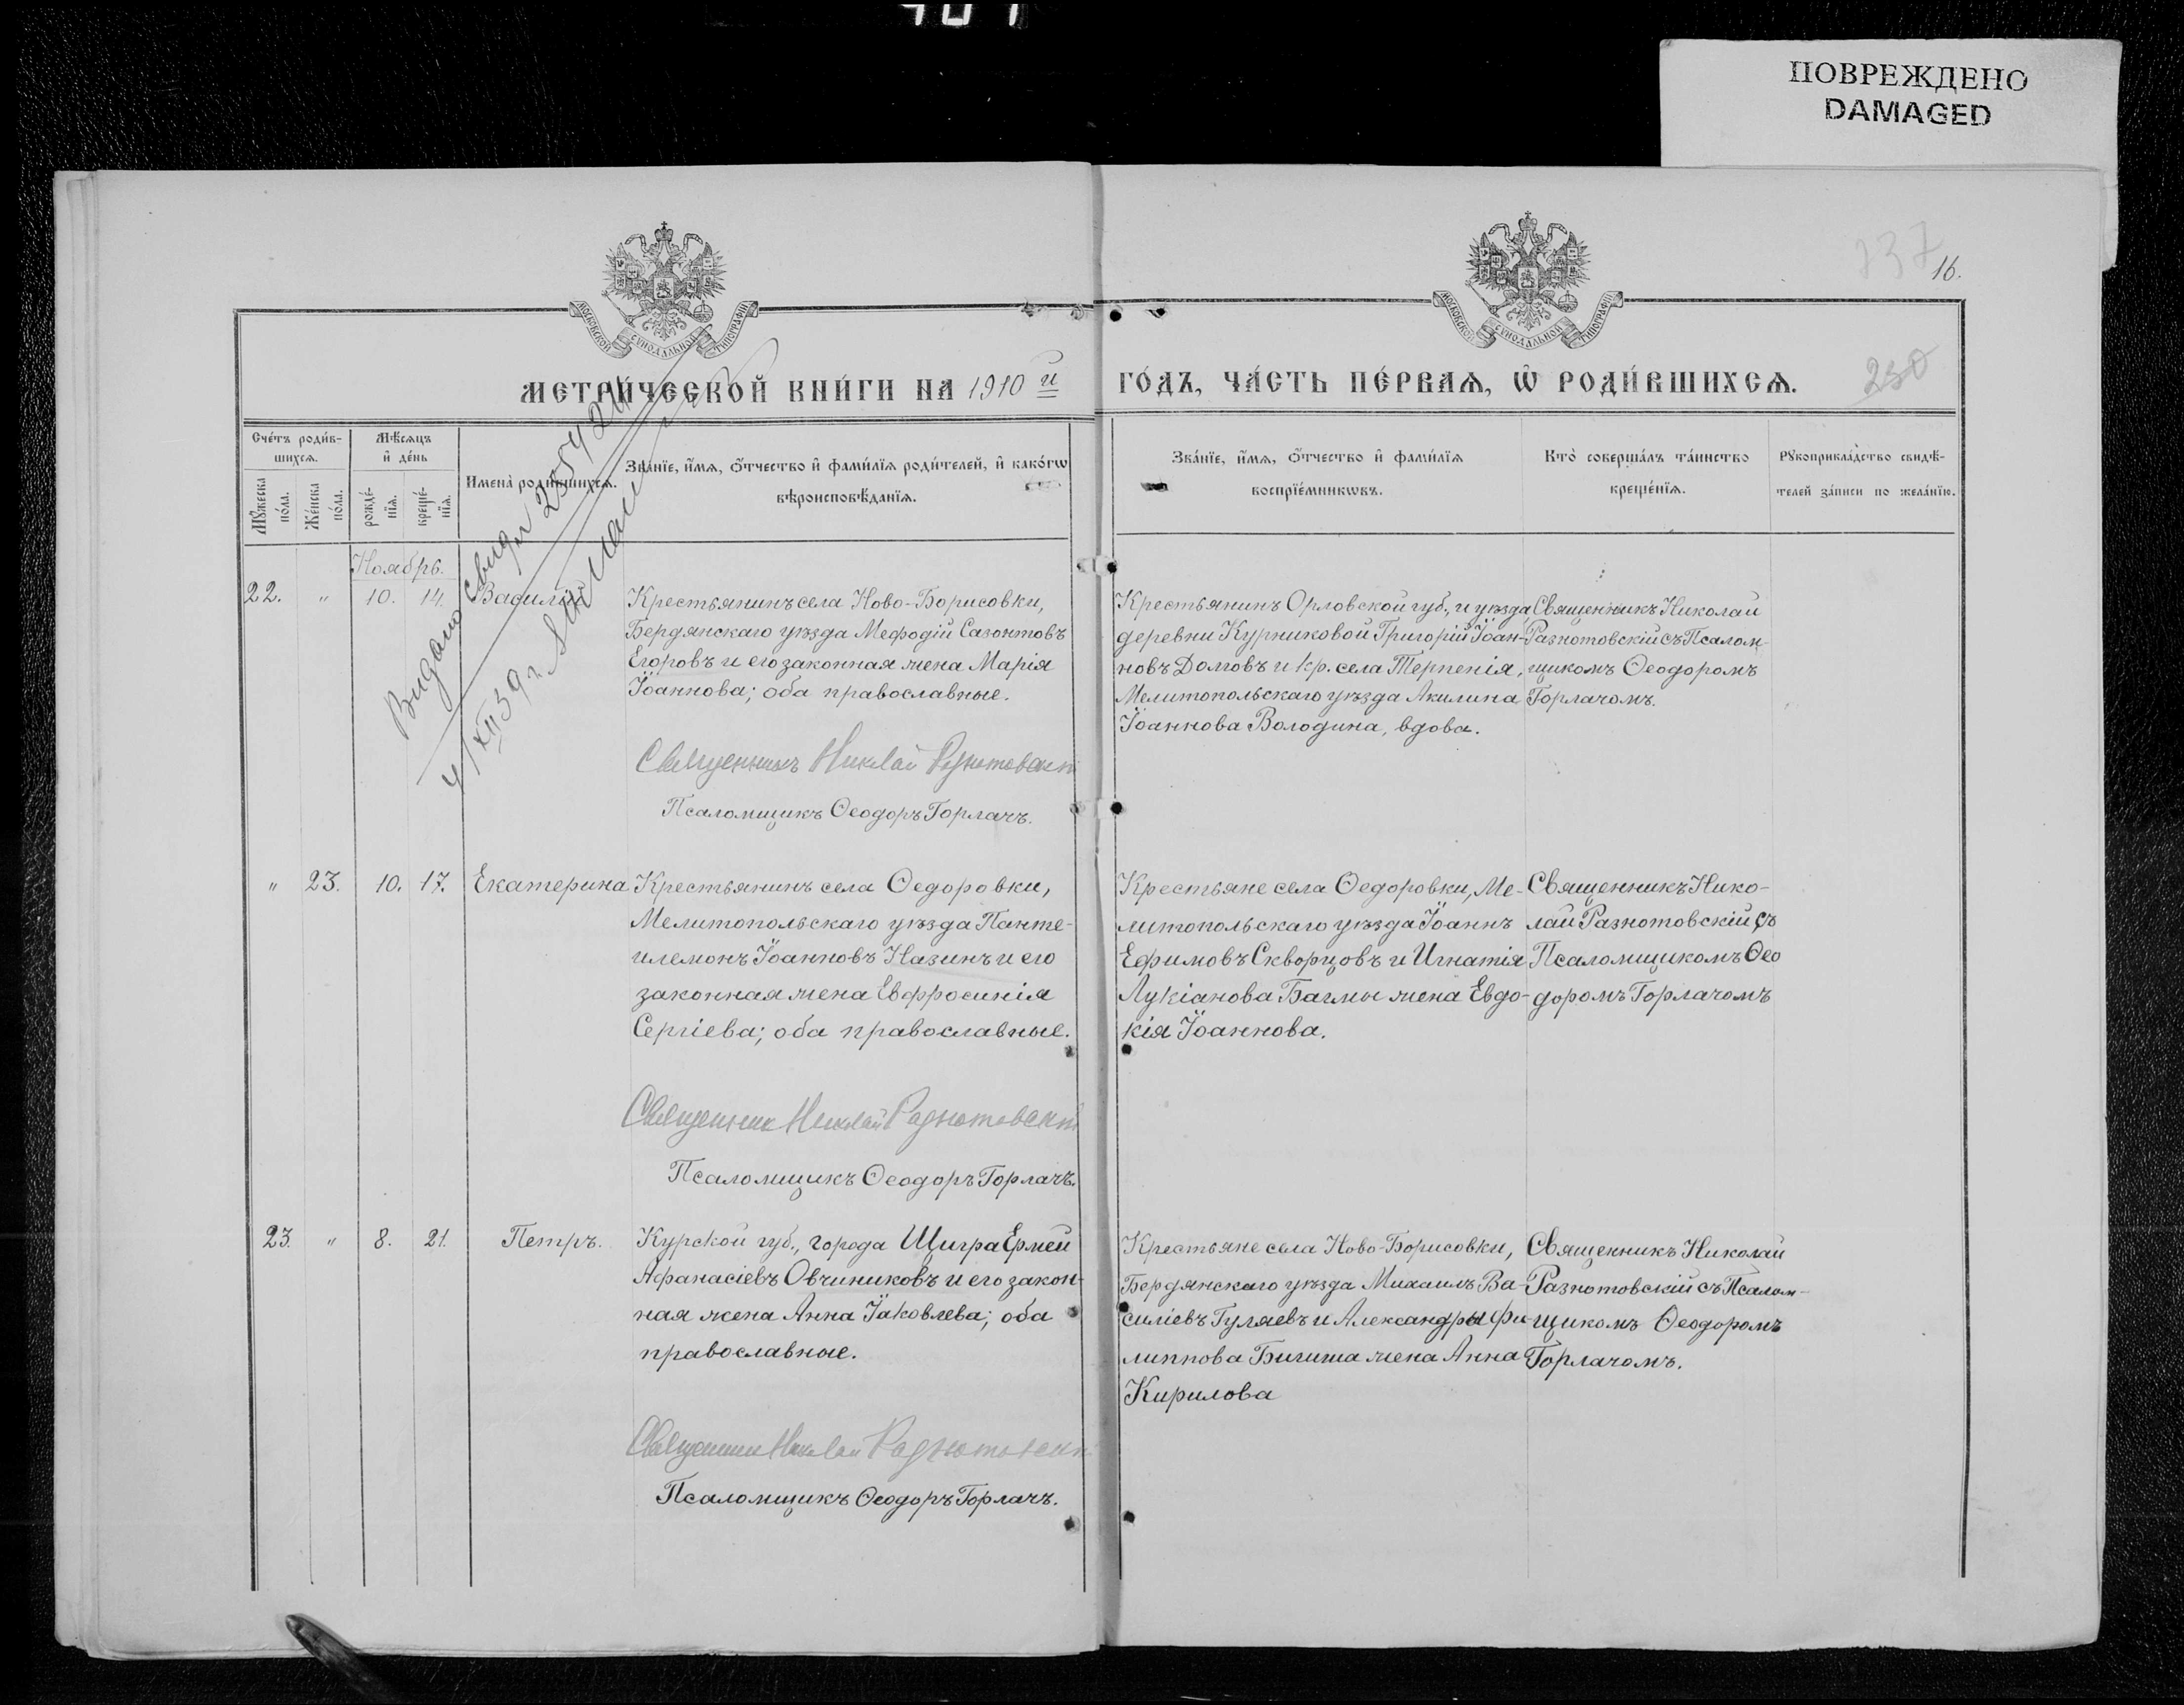 ПОВРЕЖДЕНО
DAMAGED
16.
МОСКОВСКОЙ СѴНОДАЛЬНОЙ ТИПОГРАФІИ
МОСКОВСКОЙ СѴНОДАЛЬНОЙ ТИПОГРАФІИ
МЕТРИ́ЧЕСКОЙ КНИ́ГИ НА 1910 й
ГО́ДЪ, ЧА́СТЬ ПЕ́РВАѦ, Ѡ҆ РОДИ́ВШИХСѦ.
230
Сче́тъ роди́в-
шихсѧ.
Мꙋ́жеска по́ла.
Же́нска по́ла.
Мѣ́сѧцъ
и҆ де́нь
рожде́-
нїѧ.
креще́-
нїѧ.
Имена̀ роди́вшихсѧ.
Зва́нїе, и҆́мѧ, ѻ҆́тчество и҆ фами́лїѧ роди́телей, и҆ како́гѡ
вѣроисповѣ́данїѧ.
Зва́нїе, и҆́мѧ, ѻ҆́тчество и҆ фами́лїѧ
воспрїе́мникѡвъ.
Кто̀ соверша́лъ та́инство
креще́нїѧ.
Рꙋкоприкла́дство свидѣ́-
телей за́писи по жела́нїю.
Видано свид
4/XII 39 г.
Ноябрь.
22. " 10. 14. Василій
Крестьянинъ села Ново-Борисовки,
Бердянскаго уѣзда Мефодій Сазонтовъ
Егоровъ и его законная жена Марія
Іоаннова; оба православные.
Священникъ Николай Разнотовскій
Псаломщикъ Ѳеодоръ Горлачъ.
Крестьянинъ Орловской губ., и уѣзда
деревни Курниковой Григорій Іоан-
новъ Долговъ и кр. села Терпенія,
Мелитопольскаго уѣзда Акилина
Іоаннова Володина, вдова.
Священникъ Николай
Разнотовскій съ Псалом-
щикомъ Ѳеодоромъ
Горлачомъ.
" 23. 10. 17. Екатерина
Крестьянинъ села Ѳедоровки,
Мелитопольскаго уѣзда Панте-
илемонъ Іоанновъ Назинъ и его
законная жена Евфросинія
Сергіева; оба православные.
Священник Николай Разнотовскій
Псаломщикъ Ѳеодоръ Горлачъ.
Крестьяне села Ѳедоровки, Ме-
литопольскаго уѣзда Іоаннъ
Ефимовъ Скворцовъ и Игнатія
Лукіанова Баглы жена Евдо-
кія Іоаннова.
Священникъ Нико-
лай Разнотовскій съ
Псаломщикомъ Ѳео
доромъ Горлачомъ
23. " 8. 21. Петръ.
Курской губ., города Щигра Ермей
Афанасіевъ Овчиниковъ и его закон-
ная жена Анна Іаковлева; оба
православные.
Священник Николай Разнотовскій
Псаломщикъ Ѳеодоръ Горлачъ.
Крестьяне села Ново-Борисовки,
Бердянскаго уѣзда Михаилъ Ва-
силіевъ Гуляевъ и Александры Фи-
липпова Бигита жена Анна
Кирилова
Священникъ Николай
Разнотовскій съ Псалом-
щикомъ Ѳеодоромъ
Горлачомъ.